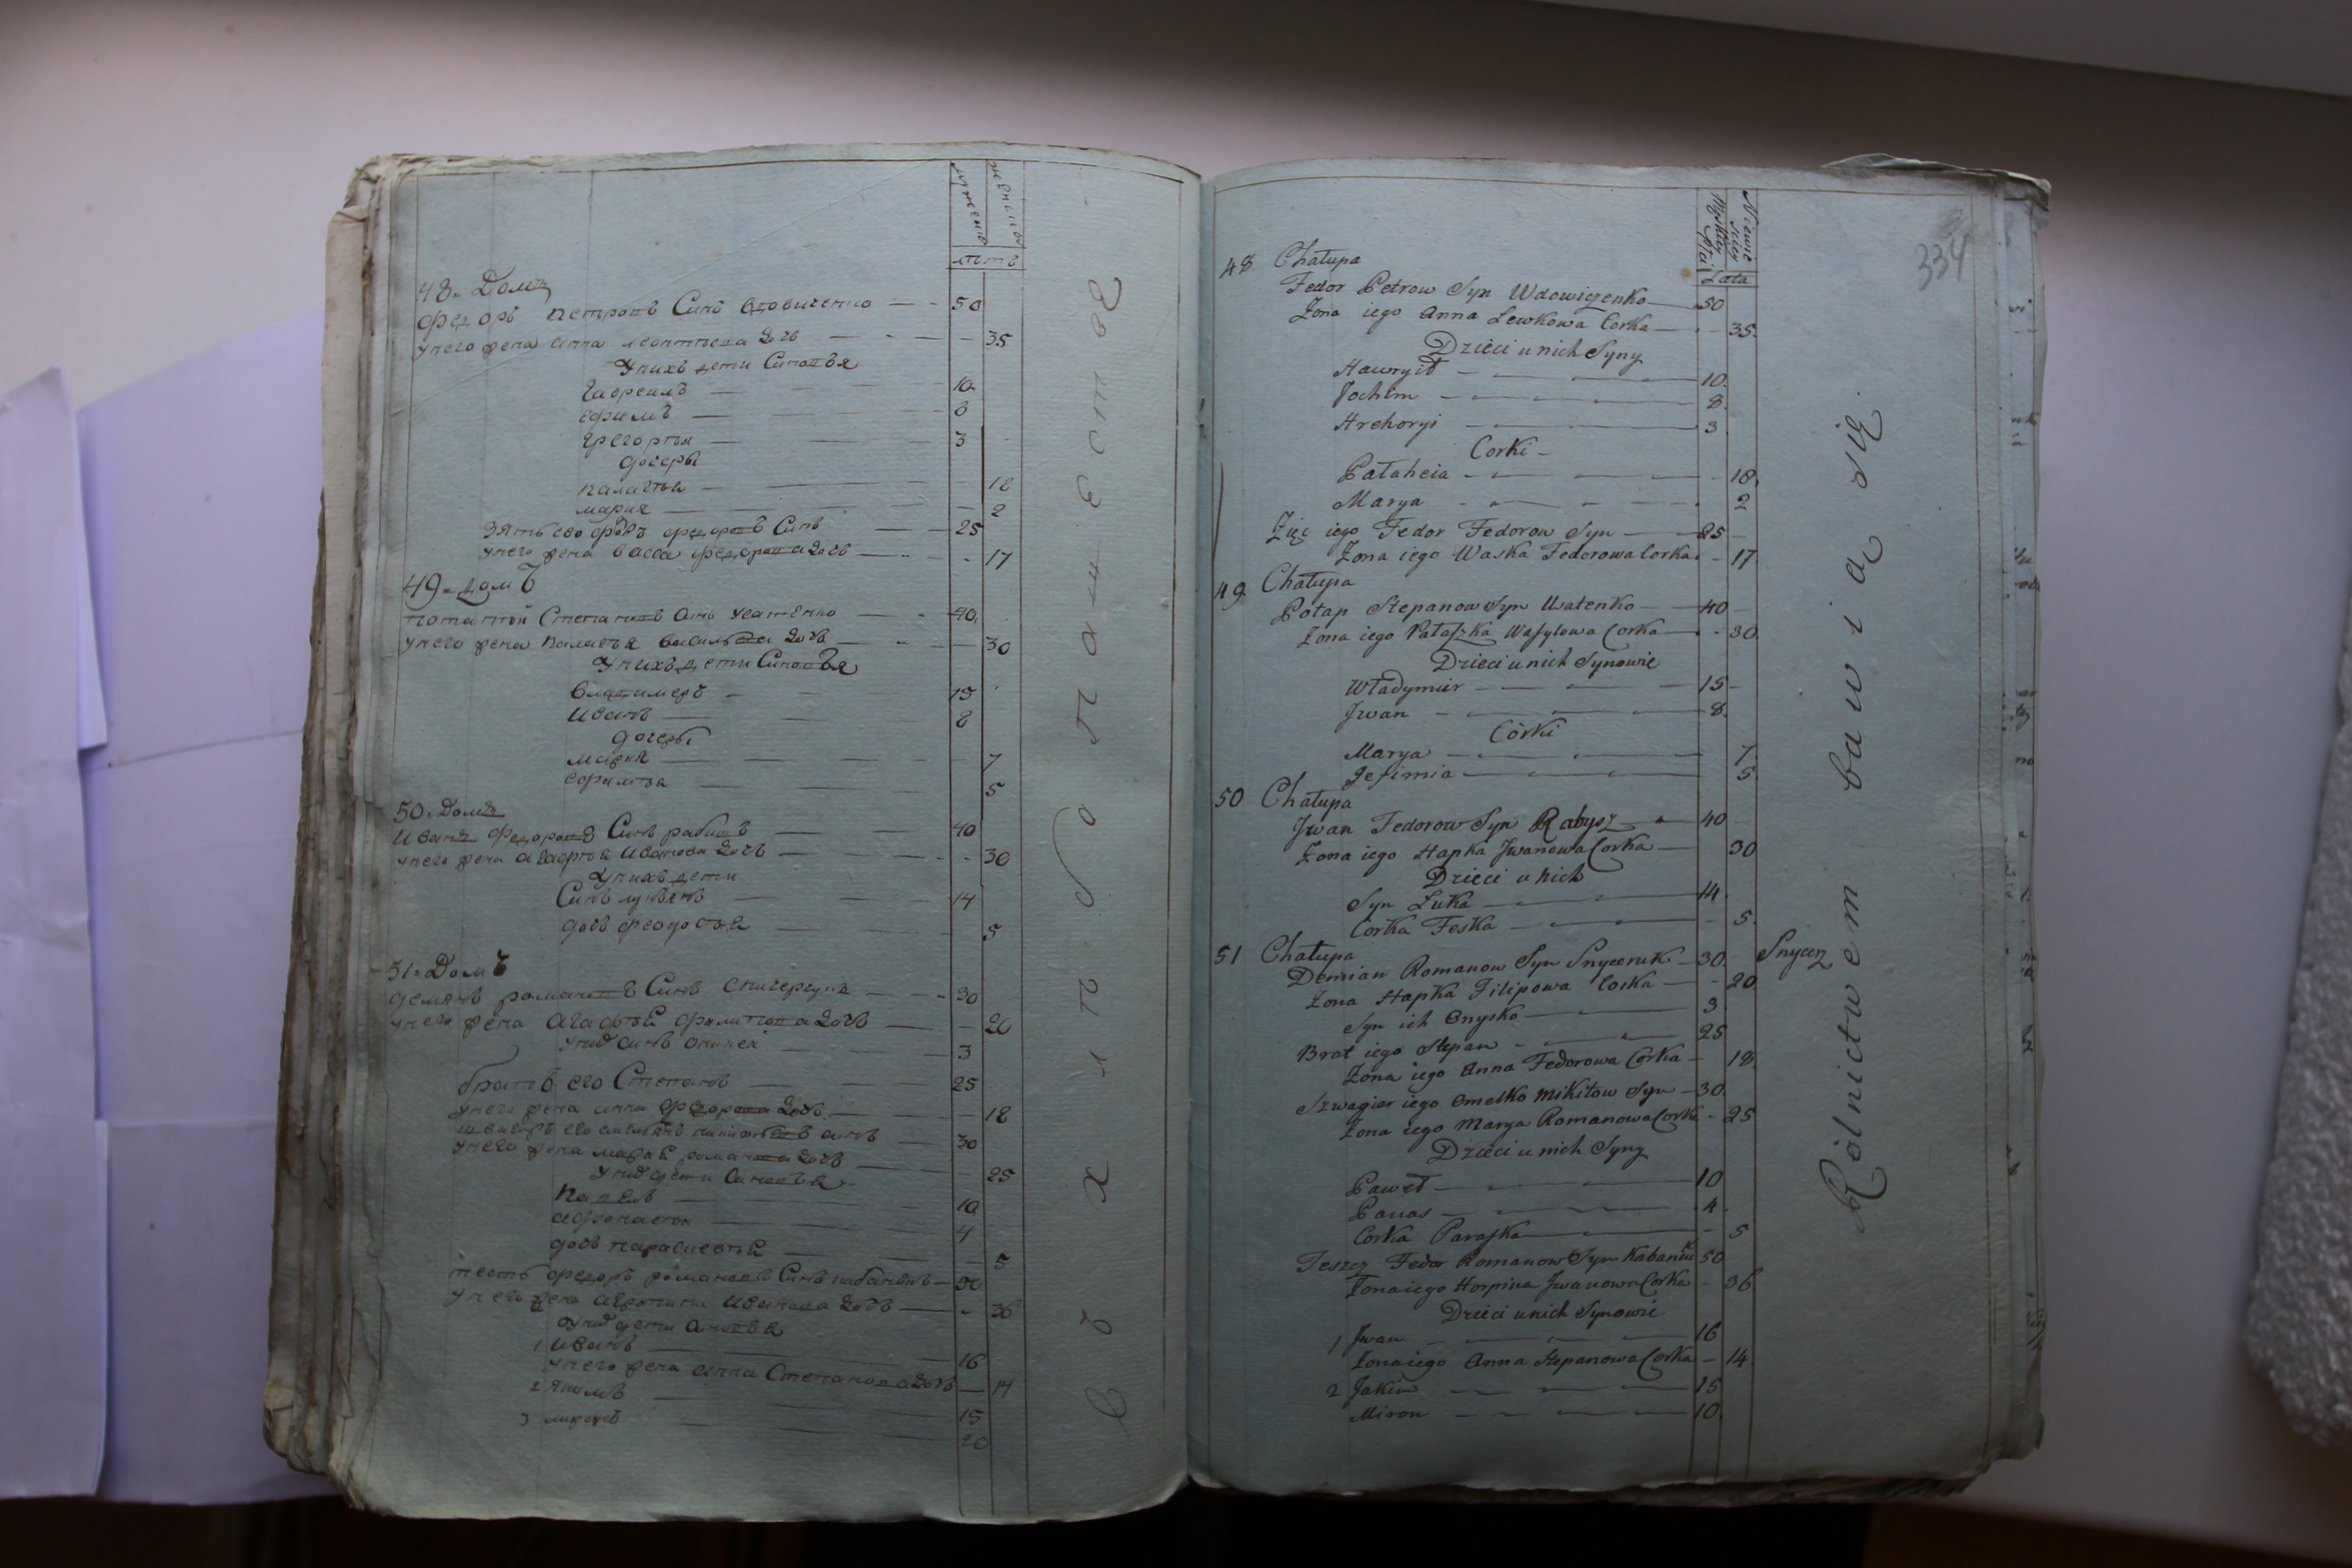 мужеска
женска
летъ
48. Домъ
Федоръ Петровъ Синъ Вдовиченко — 50
у него жена Анна Леонтиева дочь — 35
у нихъ дети Синовья
Гавреилъ — 10
Ефимъ — 8
Григорий — 3
дочеры
Палагия — 18
Мария — 2
Зять его Федоръ Федоровъ Синъ — 25
у него жена Васса Федорова дочь — 17
49. домъ
Степановъ Синъ — 40
у него жена Палагия Васильева дочь — 30
у нихъ дети Синовья
Владимеръ — 15
Иванъ — 8
дочеры
Мария — 7
Ефимия — 5
50. Домъ
Иванъ Федоровъ Синъ — 40
у него жена Агафия Иванова дочь — 30
у нихъ дети
Синъ — 14
дочь Феодосия — 5
51. Домъ
Демянъ Романовъ Синъ — 30
у него жена Агафия Филипова дочь — 20
у нихъ Синъ — 3
братъ его Степанъ — 25
у него жена Анна Федорова дочь — 18
швагеръ его Синъ — 30
у него жена Мария Романова дочь — 25
у нихъ дети Синовья
Павелъ — 10
Афонасий — 4
дочь Параскевия — 5
тесть Федоръ Романовъ Синъ — 50
у него жена Агропина Иванова дочь — 36
у нихъ дети Синовья
1 Иванъ — 16
у него жена Анна Степанова дочь — 14
2 Якимъ — 15
3 Миронъ — 10
334
Męskiey Płci
Niewieściey
Lata
48 Chałupa
Fedor Petrow Syn Wdowiczenko — 50
Żona iego Anna Lewkowa Corka — 35
Dzieci u nich Syny
Hawryił — 10
Jochim — 8
Hrehoryi — 3
Corki
Pałaheia — 18
Marya — 2
Zięć iego Fedor Fedorow Syn — 25
Żona iego Waska Fedorowa Corka — 17
49 Chałupa
Potap Stepanow Syn Usatenko — 40
Żona iego Pałaszka Wasylowa Corka — 30
Dzieci u nich Synowie
Władymir — 15
Jwan — 8
Córki
Marya — 7
Jefimia — 5
50 Chałupa
Jwan Fedorow Syn Rabysz — 40
Żona iego Hapka Jwanowa Corka — 30
Dzieci u nich
Syn Łuka — 14
Corka Feska — 5
51 Chałupa
Snycerz
Demian Romanow Syn Snyceruk — 30
Żona Hapka Filipowa Corka — 20
Syn ich Onysko — 3
Brat iego Stepan — 25
Żona iego Anna Fedorowa Corka — 18
Szwagier iego Omelko Mikitow Syn — 30
Żona iego Marya Romanowa Corka — 25
Dzieci u nich Syny
Paweł — 10
Panas — 4
Corka Paraska — 5
Teszcz Fedor Romanow Syn Kabaniuk 50
Żona iego Horpina Jwanowa Corka — 36
Dzieci u nich Synowie
1 Jwan — 16
Żona iego Anna Stepanowa Corka — 14
2 Jakim — 15
Miron — 10
Rólnictwem bawią się.